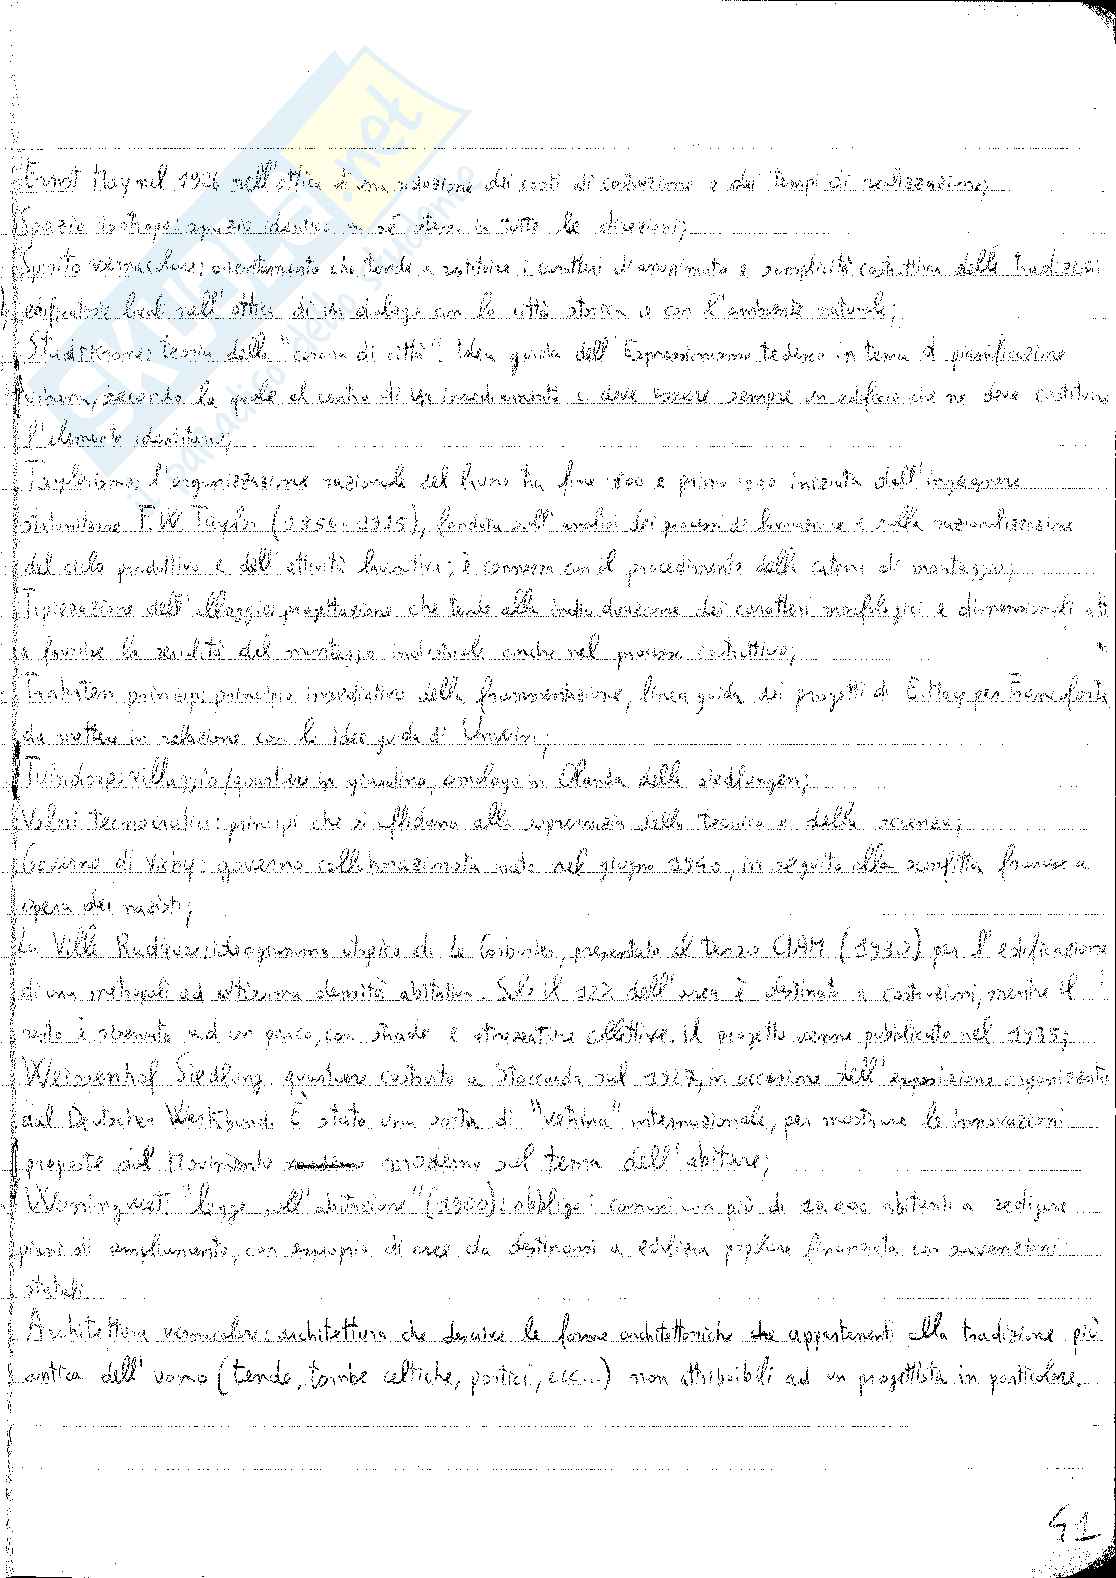 Ernst May nel 1926 nell'ottica di una riduzione dei costi di costruzione e dei tempi di realizzazione;
Spazio isotropo: spazio identico in sé stesso in tutte le direzioni;
Spirito vernacolare: orientamento che tende a restituire i caratteri di e semplicità costruttiva delle tradizioni
edificatorie locali nell'ottica di un dialogo con la città storica e con l'ambiente naturale;
Stadtkrone: teoria della "corona di città". Idea guida dell'Espressionismo tedesco in tema di pianificazione
urbana, secondo la quale al centro di un insediamento ci deve essere sempre un edificio che ne deve costituire
l'elemento identitario;
Taylorismo: l'organizzazione razionale del lavoro tra fine 800 e primo 1900 iniziata dall'ingegnere
statunitense F.W. Taylor (1856-1915), fondata sull'analisi dei processi di lavorazione e sulla razionalizzazione
del ciclo produttivo e dell'attività lavorativa; è connessa con il procedimento della catena di montaggio;
Tipizzazione dell'alloggio: progettazione che tende alla individuazione dei caratteri morfologici e dimensionali atti
a fornire la serialità del montaggio industriale anche nel processo costruttivo;
Trabanten princip: principio insediativo della frammentazione, linea guida dei progetti di E. May per Francoforte
da mettere in relazione con le idee guida di Unwin;
Tuindorp: villaggio/quartiere in giardino, analogo in Olanda delle siedlungen;
Valori tecnocratici: principi che si affidano alla supremazia della tecnica e della scienza;
Governo di Vichy: governo collaborazionista nato nel giugno 1940, in seguito alla sconfitta francese a
opera dei nazisti;
La Ville Radieuse: ideogramma utopico di Le Corbusier, presentato al terzo CIAM (1930) per l'edificazione
di una metropoli ad altissima densità abitativa. Solo il 12% dell'area è destinato a costruzioni, mentre il
resto è riservato ad un parco, con strade e attrezzature collettive. Il progetto venne pubblicato nel 1935;
Weissenhof Siedlung: quartiere costruito a Stoccarda nel 1927, in occasione dell'esposizione organizzata
dal Deutscher Werkbund. È stato una sorta di "vetrina" internazionale, per mostrare le innovazioni
proposte dal Movimento moderno sul tema dell'abitare;
Woningwet: "legge sull'abitazione" (1900): obbliga i comuni con più di 10.000 abitanti a redigere
piani di ampliamento, con esproprio di aree da destinarsi a edilizia popolare finanziata con sovvenzioni
statali.
Architettura vernacolare: architettura che descrive le forme architettoniche appartenenti alla tradizione più
antica dell'uomo (tende, tombe celtiche, portici, ecc...) non attribuibili ad un progettista in particolare.
41
SKUOLA.net
il paradiso dello studente